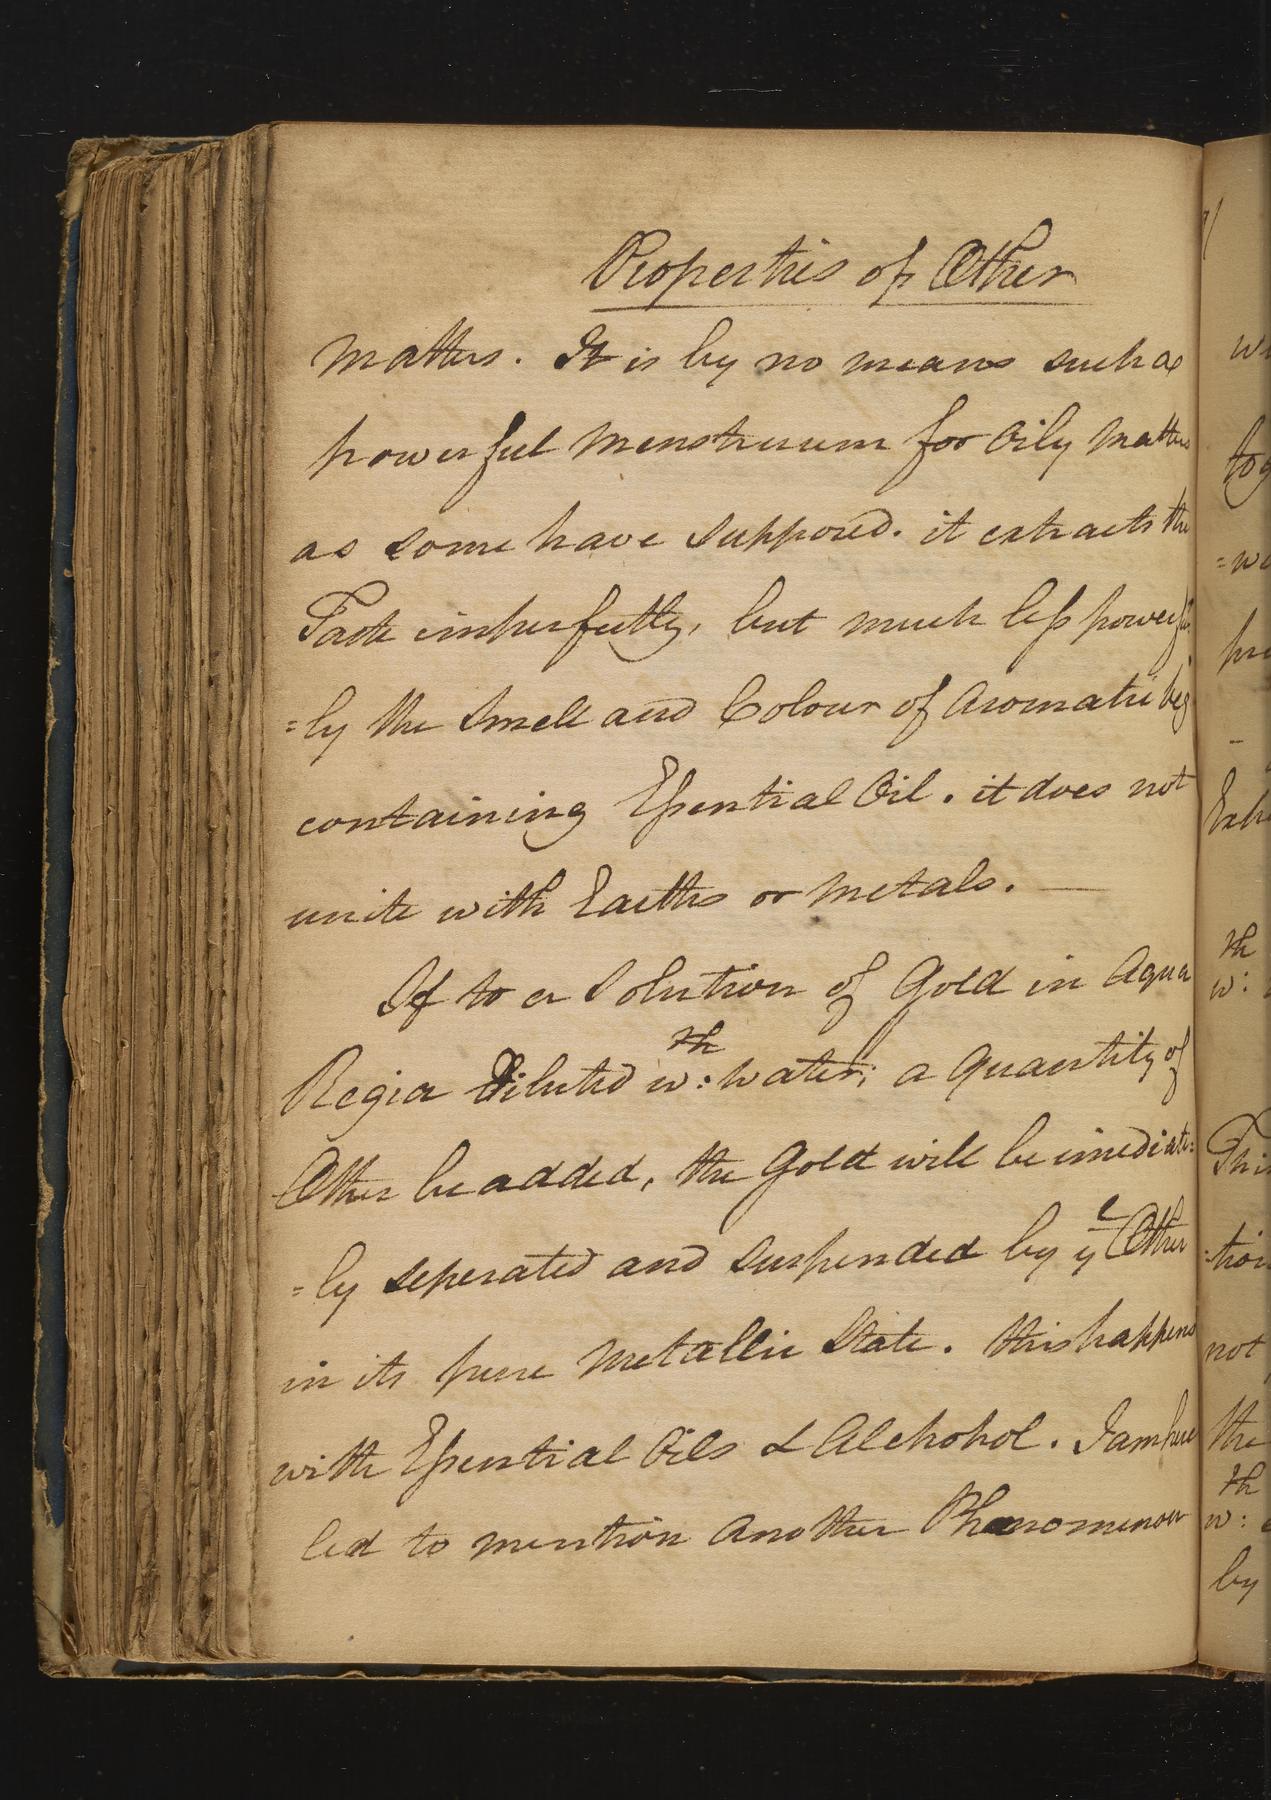 Properties of Æther
matters. It is by no means such a
powerful Menstruum for Oily Matters
as some have supposed. it extracts the
Taste imperfectly, but much less powerful
=ly the Smell and Colour of Aromatic veg
containing Essential Oil. it does not
unite with Earths or Metals. —
If to a Solution of Gold in Aqua
Regia Diluted w:th water; a Quantity of
Æther be added, the Gold will be imediate=
=ly seperated and suspended by ye Æther
in its pure Metallic State. this happens
with Essential Oils & Alchohol. I am here
led to mention another Phænomenon